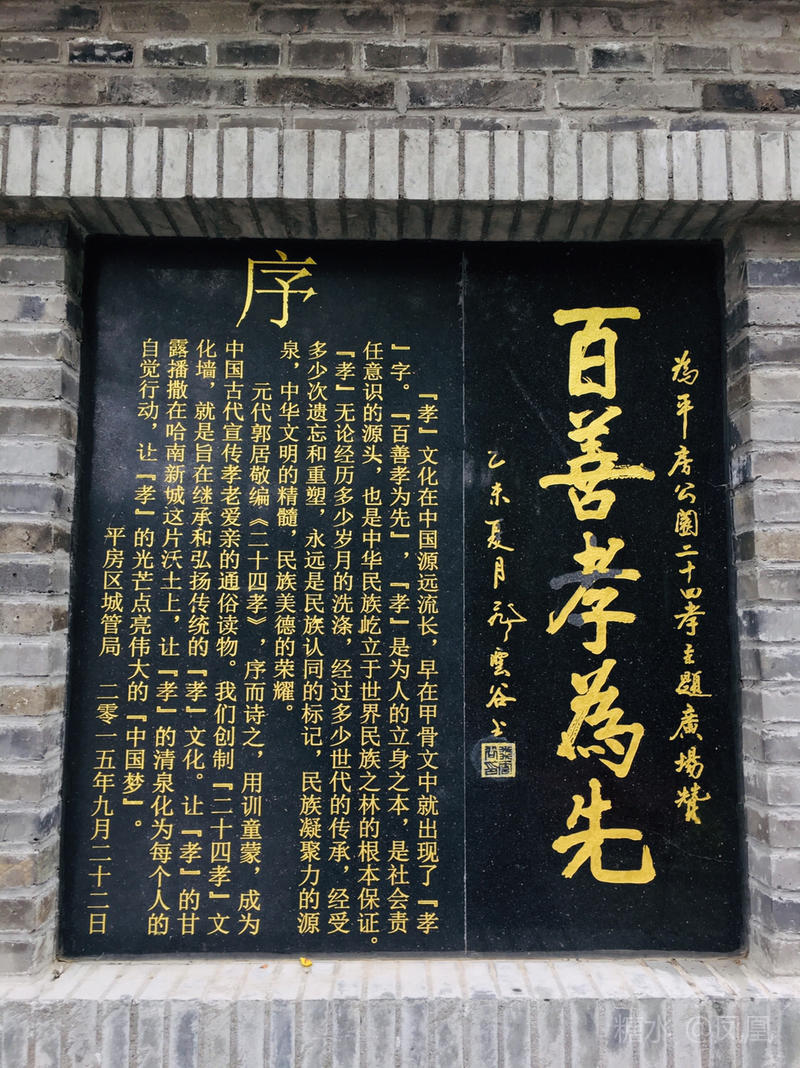 為平房公園二十四孝主題廣場贊
百善孝為先
乙未夏月
雲谷書
序
『孝』文化在中国源远流长，早在甲骨文中就出现了『孝
』字。『百善孝为先』，『孝』是为人的立身之本，是社会责
任意识的源头，也是中华民族屹立于世界民族之林的根本保证。
『孝』无论经历多少岁月的洗涤，经过多少世代的传承，经受
多少次遗忘和重塑，永远是民族认同的标记，民族凝聚力的源
泉，中华文明的精髓，民族美德的荣耀。
元代郭居敬编《二十四孝》，序而诗之，用训童蒙，成为
中国古代宣传孝老爱亲的通俗读物。我们创制『二十四孝』文
化墙，就是旨在继承和弘扬传统的『孝』文化。让『孝』的甘
露播撒在哈南新城这片沃土上，让『孝』的清泉化为每个人的
自觉行动，让『孝』的光芒点亮伟大的『中国梦』。
平房区城管局 二零一五年九月二十二日
糖水 @凤凰